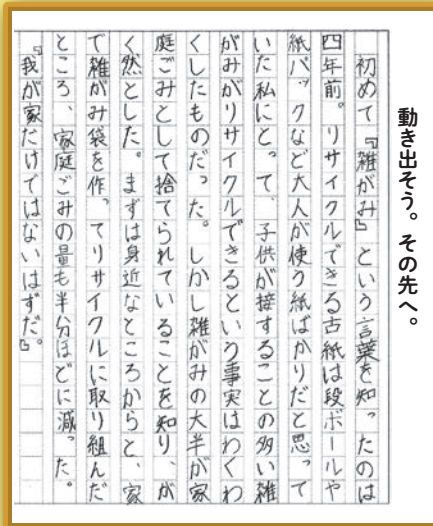 動き出そう。その先へ。
初めて『雑がみ』という言葉を知ったのは
四年前。リサイクルできる古紙は段ボールや
紙パックなど大人が使う紙ばかりだと思って
いた私にとって、子供が接することの多い雑
がみがリサイクルできるという事実はわくわ
くしたものだった。しかし雑がみの大半が家
庭ごみとして捨てられていることを知り、が
く然とした。まずは身近なところからと、家
で雑がみ袋を作ってリサイクルに取り組んだ
ところ、家庭ごみの量も半分ほどに減った。
『我が家だけではないはずだ。』